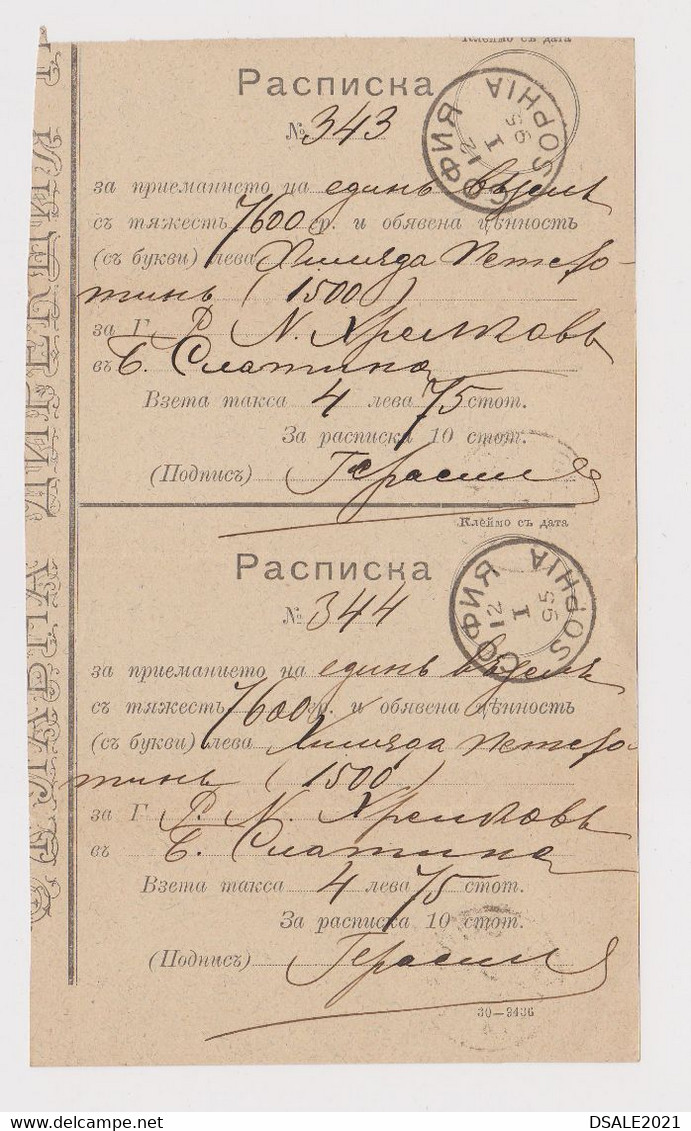 Клеймо съ дата
Расписка
№ 343
СОФИЯ SOPHIA
12
I
95
за приеманието на единъ вързелъ
съ тяжесть 7600 гр. и обявена цѣнность
(съ букви) лева Хиляда петсто-
тинъ (1500)
за Г. Р. Н. Хрелковъ
въ Б. Слатина
Взета такса 4 лева 75 стот.
За расписка 10 стот.
(Подпись)
Клеймо съ дата
Расписка
№ 344
СОФИЯ SOPHIA
12
I
95
за приеманието на единъ вързелъ
съ тяжесть 7600 гр. и обявена цѣнность
(съ букви) лева Хиляда петсто-
тинъ (1500)
за Г. Р. Н. Хрелковъ
въ Б. Слатина
Взета такса 4 лева 75 стот.
За расписка 10 стот.
(Подпись)
30—9436
DSALE2021